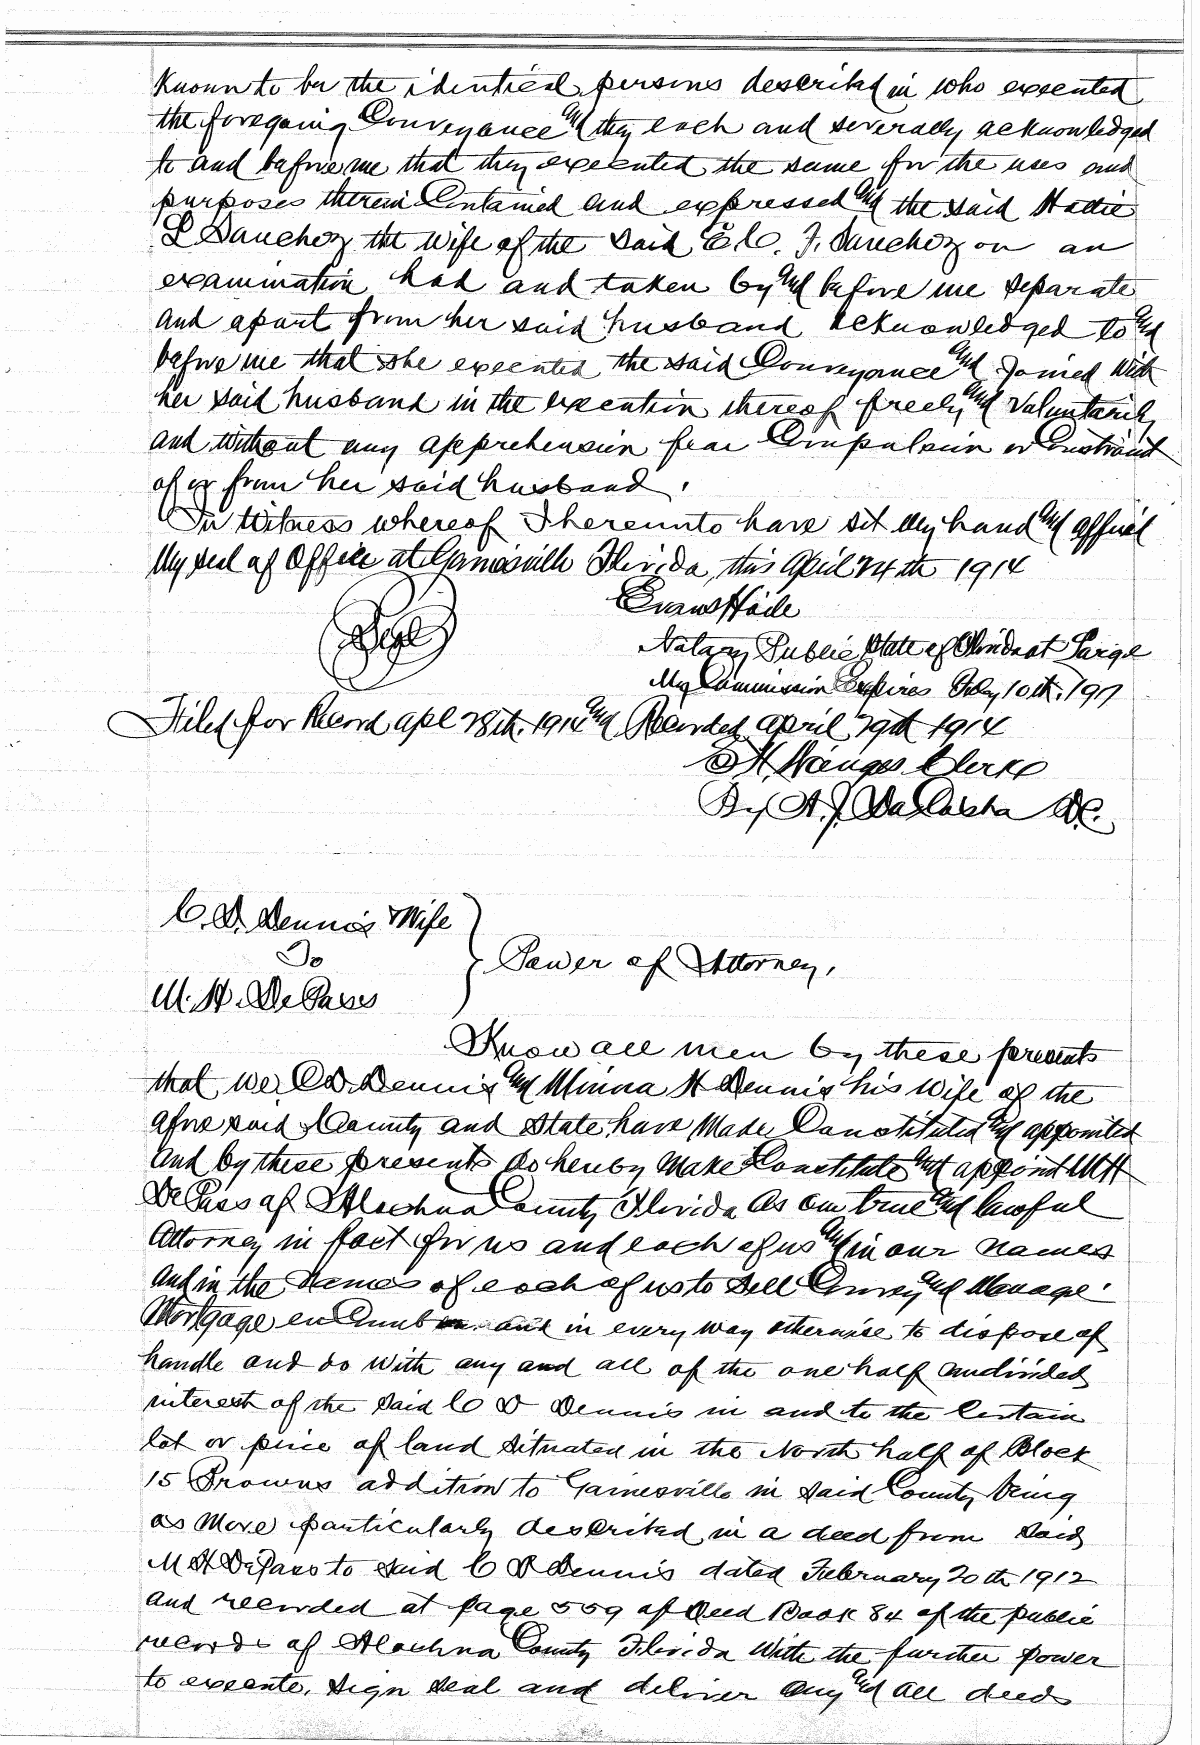 Known to be the identical persons described in who executed
the foregoing Conveyance and they each and severally acknowledged
to and before me that they executed the same for the uses and
purposes therein Contained and expressed and the said Hattie
L Sanchez the wife of the said E. C. F. Sanchez on an
examination had and taken by and before me separate
and apart from her said husband acknowledged to and
before me that she executed the said Conveyance and Joined With
her said husband in the execution thereof freely and Voluntarily
and without any apprehension fear Compulsion or Constraint
of or from her said husband.
In Witness whereof I hereunto have set My hand and affixed
My seal of Office at Gainesville Florida, this April 24th 1914
Evans Haile
Seal
Notary Public State of Florida at Large
My Commission Expires July 10th, 1917
Filed for Record Apl 28th. 1914 and Recorded April 29th 1914
S. H. Wienges Clerk
By A. J. DaCosta D.C.
C. D. Dennis & Wife
To
M. H. DePass
Power of Attorney,
Know all men by these presents
that we C D Dennis and Minna H Dennis his Wife of the
afore said County and State have Made Constituted and appointed
and by these presents do hereby Make Constitute and appoint M H
DePass of Alachua County Florida As our true and lawful
Attorney in fact for us and each of us and in our names
and in the names of each of us to Sell Convey and Manage
Mortgage encumber and in every way otherwise to dispose of
handle and do with any and all of the one half undivided
interest of the said C D Dennis in and to the Certain
lot or piece of land situated in the North half of Block
15 Browns addition to Gainesville in said County being
as More particularly described in a deed from said
M H DePass to said C D Dennis dated February 20th 1912
and recorded at page 559 of Deed Book 84 of the public
records of Alachua County Florida With the further power
to execute, sign seal and deliver any and all deeds